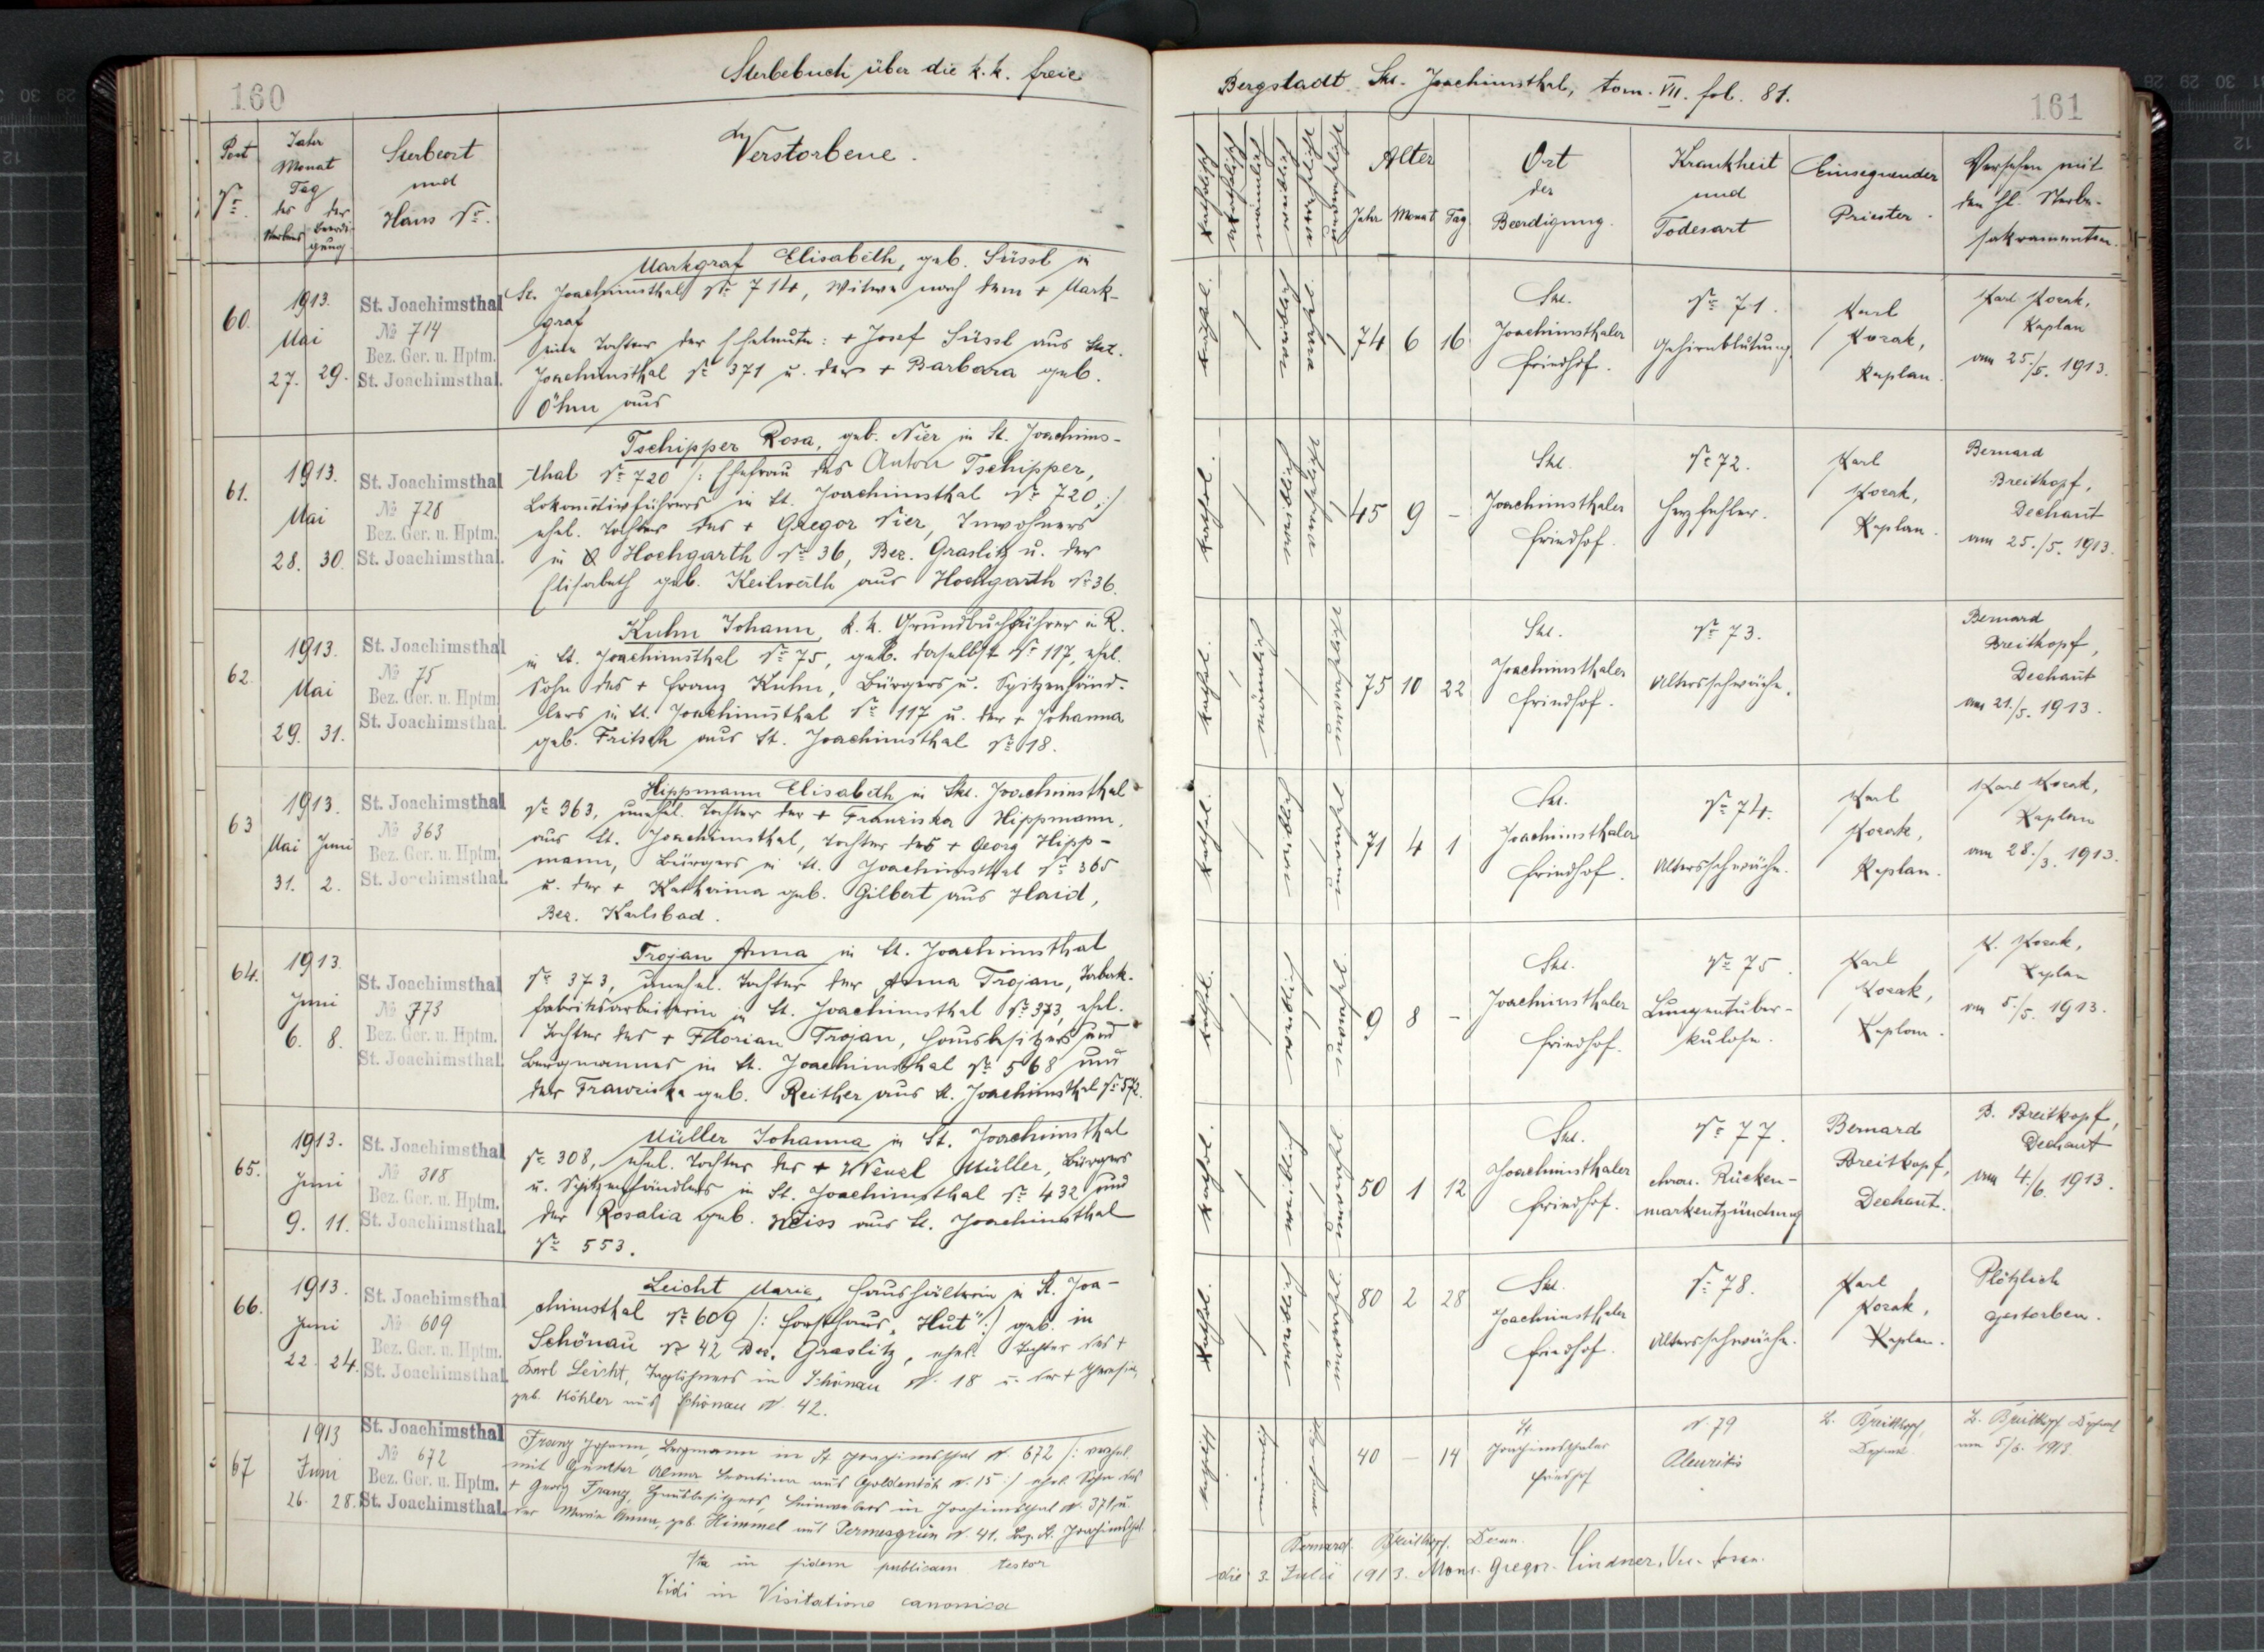 160
Sterbebuch über die k.k. freie
Post
No.
Jahr
Monat
Tag
des
Sterbens
der
Beerdi-
gung
Sterbeort
und
Haus No.
Verstorbene.
60.
1913.
Mai
27. 29.
St. Joachimsthal
No 714
Bez. Ger. u. Hptm.
St. Joachimsthal.
Markgraf Elisabeth, geb. Süssl in
St. Joachimsthal No 714, Witwe nach dem + Mark-
graf
eine Tochter der Eheleute: + Josef Süssl aus Skt.
Joachimsthal No 371 u. der + Barbara geb.
Öhm aus
61.
1913.
Mai
28. 30.
St. Joachimsthal
No 720
Bez. Ger. u. Hptm.
St. Joachimsthal.
Tschipper Rosa, geb. Nier in St. Joachims-
thal No 720 /: Ehefrau des Anton Tschipper,
Lokomotivführers in St. Joachimsthal No 720 :/
ehel. Tochter des + Gregor Nier, Inwohners
in Hochgarth No 36, Bez. Graslitz u. der
Elisabeth geb. Keilwerth aus Hochgarth No 36.
62.
1913.
Mai
29. 31.
St. Joachimsthal
No 75
Bez. Ger. u. Hptm.
St. Joachimsthal.
Kuhn Johann, k.k. Grundbuchführer i. R.
in St. Joachimsthal No 75, geb. daselbst No 117, ehel.
Sohn des + Franz Kuhn, Bürgers u. Spitzenhänd-
lers in St. Joachimsthal No 117 u. der + Johanna
geb. Fritsch aus St. Joachimsthal No 18.
63
1913.
Mai Juni
31. 2.
St. Joachimsthal
No 363
Bez. Ger. u. Hptm.
St. Joachimsthal.
Hippmann Elisabeth in Skt. Joachimsthal
No 363, unehel. Tochter der + Franziska Hippmann,
aus St. Joachimsthal, Tochter des + Georg Hipp-
mann, Bürgers in St. Joachimsthal No 365
u. der + Katharina geb. Gilbert aus Haid,
Bez. Karlsbad.
64.
1913.
Juni
6. 8.
St. Joachimsthal
No 373
Bez. Ger. u. Hptm.
St. Joachimsthal.
Trojan Anna in St. Joachimsthal
No 373, unehel. Tochter der Anna Trojan, Tabak-
fabriksarbeiterin in St. Joachimsthal No 373, ehel.
Tochter des + Florian Trojan, Hausbesitzers und
Bergmannes in St. Joachimsthal No 568 und
der Franziska geb. Reither aus St. Joachimsthal No 572.
65.
1913.
Juni
9. 11.
St. Joachimsthal
No 308
Bez. Ger. u. Hptm.
St. Joachimsthal.
Müller Johanna in St. Joachimsthal
No 308, ehel. Tochter des + Wenzl Müller, Bürgers
u. Spitzenhändlers in St. Joachimsthal No 432 und
der Rosalia geb. Weiss aus St. Joachimsthal
No 553.
66.
1913.
Juni
22. 24.
St. Joachimsthal
No 609
Bez. Ger. u. Hptm.
St. Joachimsthal.
Leicht Marie, Haushälterin in St. Joa-
chimsthal No 609 /: Forsthaus „Hut" :/ geb. in
Schönau No 42 Bez. Graslitz, ehel. Tochter des +
Karl Leicht, Taglöhners in Schönau N. 18 u. der + Theresia,
geb. Köhler aus Schönau N. 42.
67
1913
Juni
26. 28.
St. Joachimsthal
No 672
Bez. Ger. u. Hptm.
St. Joachimsthal.
Franz Johann, Bergmann in St Joachimsthal N. 672 /: verehel.
mit Günther Leontina aus N. 15 :/ ehel. Sohn des
+ Georg Franz, Hausbesitzers, in Joachimsthal N. 371, u.
der Maria Anna, geb. Himmel aus Permesgrün N. 41. Bez. St. Joachimsthal
Ita in fidem publicam testor
Vidi in Visitatione canonica
161
Bergstadt Skt. Joachimsthal, tom. VII. fol. 81.
katholisch
akatholisch
männlich
weiblich
Alter
Jahr Monat Tag
Ort
der
Beerdigung.
Krankheit
und
Todesart
Einsegnender
Priester.
Versehen mit
den hl. Sterbe-
sakramenten.
kathol.
74 6 16
Skt.
Joachimsthaler
Friedhof.
No 71.
Gehirnblutung.
Karl
Kozak,
Kaplan.
Karl Kozak,
Kaplan
am 25./5. 1913.
kathol.
45 9 -
Skt.
Joachimsthaler
Friedhof.
No 72.
Herzfehler.
Karl
Kozak,
Kaplan.
Bernard
Breitkopf,
Dechant
am 25./5. 1913.
kathol.
männlich
75 10 22
Skt.
Joachimsthaler
Friedhof.
No 73.
Altersschwäche.
Bernard
Breitkopf,
Dechant
am 21./5. 1913.
kathol.
71 4 1
Skt.
Joachimsthaler
Friedhof.
No 74.
Altersschwäche.
Karl
Kozak,
Kaplan.
Karl Kozak,
Kaplan
am 28./3. 1913.
kathol.
9 8 -
Skt.
Joachimsthaler
Friedhof.
No 75.
Lungentuber-
kulose.
Karl
Kozak,
Kaplan.
K. Kozak,
Kaplan
am 5./5. 1913.
kathol.
50 1 12
Skt.
Joachimsthaler
Friedhof.
No 77.
chron. Rücken-
markentzündung
Bernard
Breitkopf,
Dechant.
B. Breitkopf,
Dechant
am 4./6. 1913.
kathol.
80 2 28
Skt.
Joachimsthaler
Friedhof.
No 78.
Altersschwäche.
Karl
Kozak,
Kaplan.
Plötzlich
gestorben.
katholisch
männlich
40 - 14
St
Joachimsthaler
Friedhof
N. 79
Pleuritis
B. Breitkopf,
Dechant.
B. Breitkopf Dechant
am 5/6. 1913
Bernard Breitkopf. Decan.
die 3. Julii 1913. Mons. Gregor. Lindner, Vic.